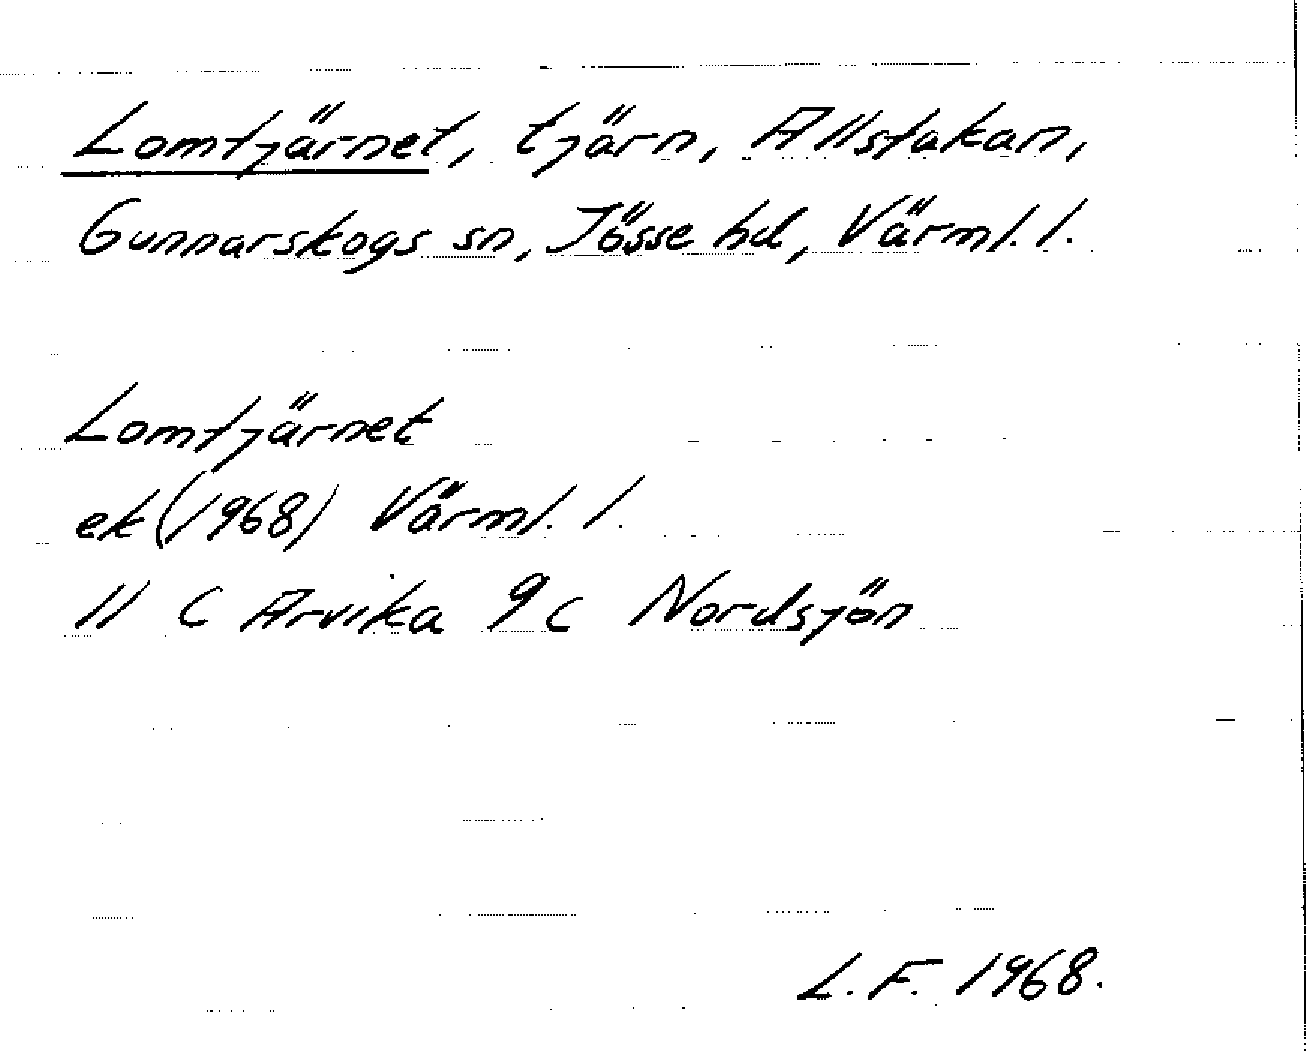 Lomtjärnet, tjärn, Allstakan,
Gunnarskogs sn, Jösse hd, Värml. l.
Lomtjärnet
ek (1968) Värml. l.
11 C Arvika 9c Nordsjön
L. F. 1968.